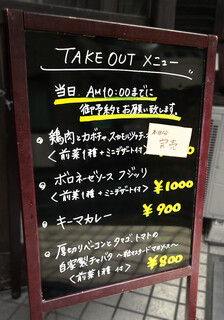 TAKE OUT メニュー
当日 AM10:00までに
御予約をお願い致します。
鶏肉とカボチャ、
<前菜1種+ミニデザート付>
完売
ボロネーゼソース フジッリ
<前菜1種+ミニデザート付> ¥1000
キーマカレー ¥900
厚切りベーコンとタマゴ、トマトの
自家製チャバタ ～粒マスタードマヨソース～
<前菜1種付> ¥800